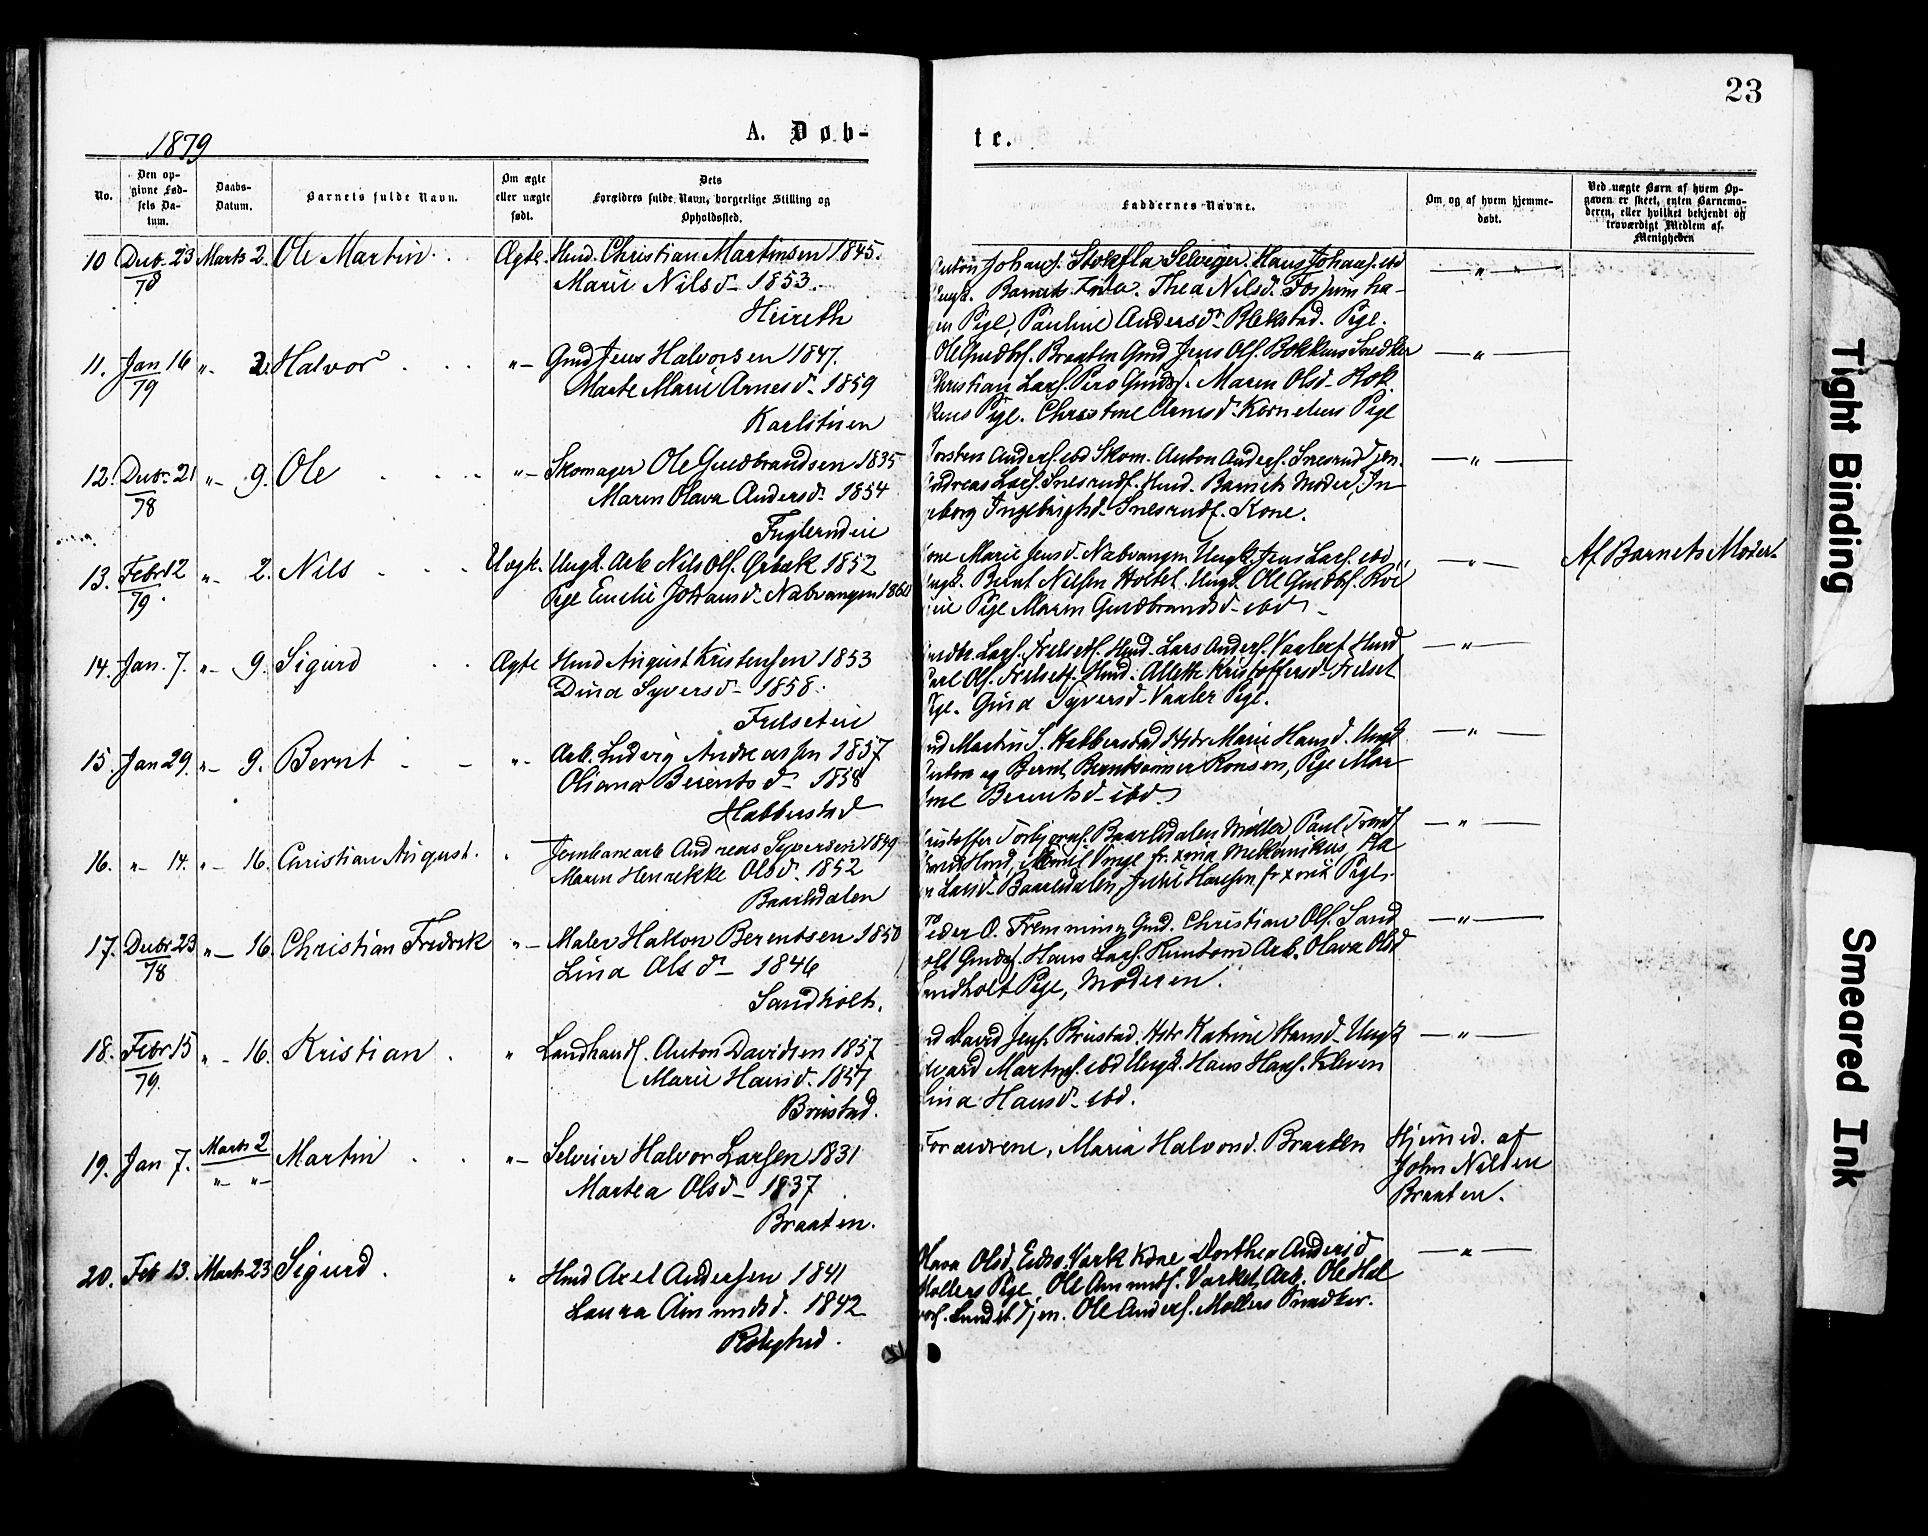 23
1879
A. Døb-
te.
No.
Den op-
givne Fød-
sels Da-
tum.
Daabs-
Datum.
Barnets fulde Navn.
Om ægte
eller uægte
født.
Dets
Forældres fulde Navn, borgerlige Stilling og
Opholdssted.
Faddernes Navne.
Om og af hvem hjemme-
døbt.
Ved uægte Børn af hvem Op-
gaven er skeet, enten Barnemo-
deren, eller hvilket bekjendt og
troværdigt Medlem af
Menigheden
10 Decb. 23 Marts 2. Ole Martin Ægte. Huusm. Christian Martinsen 1845.
78
Marie Nilsd. 1853.
Anton Johans. Stokfla Selveiger. Hans Johans. ibd
Ungk. Barnets Thea Nilsd. Fossum ha-
gen Pige, Pauline Andersd. Blekstad. Pige.
11. Jan 16 " 2. Halvor "- Gmd Jens Halvorsen 1847.
79
Marte Marie Arnesd. 1859
Karlstuen
Ole Gudbrs. Braaten Gmd Jens Ols. Snedker
Christian Lars. Gmds. Maren Olsd. Bok
Pige. Christine Arnesd. Kornelius Pige
12. Decbr. 21 "- 9. Ole "- Skomager Ole Gudbrandsen 1835
78
Maren Olava Andersd. 1854
Torsten Anders. ibd Skom. Anton Anders. Snesrud Tjen.
Andreas Lars. Snesrud. Barnets Moder, In-
geborg Ingebrigtsd. Snesrud. Kone.
13. Febr 12 "- 2. Nils Uægt. Ungk. Arb. Nils Ols. 1852
79.
Pige Emelie Johansd. Nabvangen 1860
Kone Marie Jensd. Nabvangen Ungk. Jens Lars. ibd
Ungk. Bernt Nilsen Holtet. Ungk. Ole Gudbrs.
Pige Maren Gudbrandsd. ibd
Af Barnets Moder
14. Jan. 7. "- 9. Sigurd Ægte Hmd August Kristensen 1853
Dina Syversd. 1858.
Lars. Hmd. Lars Anders. Vaaler Hmd
Carl Ols. Hmd. Alette Kristoffersd.
Pige. Gina Syversd. Vaaler Pige.
15. Jan 29. "- 9. Bernt "- Arb. Ludvig Andreassen 1857
Oliana Berentsd. 1858
Habberstad
Gmd Martin S. Habberstad Hstr Marie Hansd. Ungk
Anton og Bernt Pige Mar
tine Berentsd. ibd
16. "- 14. "- 16. Christian August. Jernbanearb Andreas Syversen 1849
Maren Henrekke Olsd. 1852
Baarlidalen
Kristoffer Torbjørns. Baarlidalen Møller, Paul
Hmd, Emil Mekanikus, Ka
Larsd. Baarlidalen, Julie Hansen Pige.
17. Decbr 23 "- 16. Christian Fredrik "- Maler Halvor Berentsen 1850
78
Lina Olsd. 1846
Sandholt.
Peder O. Fremming Gmd. Christian Ols. Sand
holt Gmds. Hans Lars. Arb. Olava Olsd
Sandholt Pige, Moderen.
18. Febr 15 "- 16. Kristian " Landhandl. Anton Davidsen 1857
79.
Marie Hansd. 1857
Brustad.
Gmd David Jens. Brustad. Hstr Katrine Hansd. Ungk
Edvard Martins. ibd Ungk. Hans Hans. Kleven
Lina Hansd. ibd.
19. Jan 7. Marts 2 Martin "- Selveier Halvor Larsen 1831
"- "-
Martea Olsd. 1837
Braaten.
Forældrene, Maria Halvorsd. Braaten
Hjemmed. af
John Nilsen
Braaten.
20. Feb 13. Marts 23 Sigurd. " Hmd Axel Andersen 1841
Laura Amundsd. 1842
Olava Olsd. Kone Dorthea Andersd
Møllers Pige Ole Amunds. Arb. Ole Hal
vors. Lundet Tjen. Ole Anders. Møllers Snedker.
Tight Binding
Smeared Ink